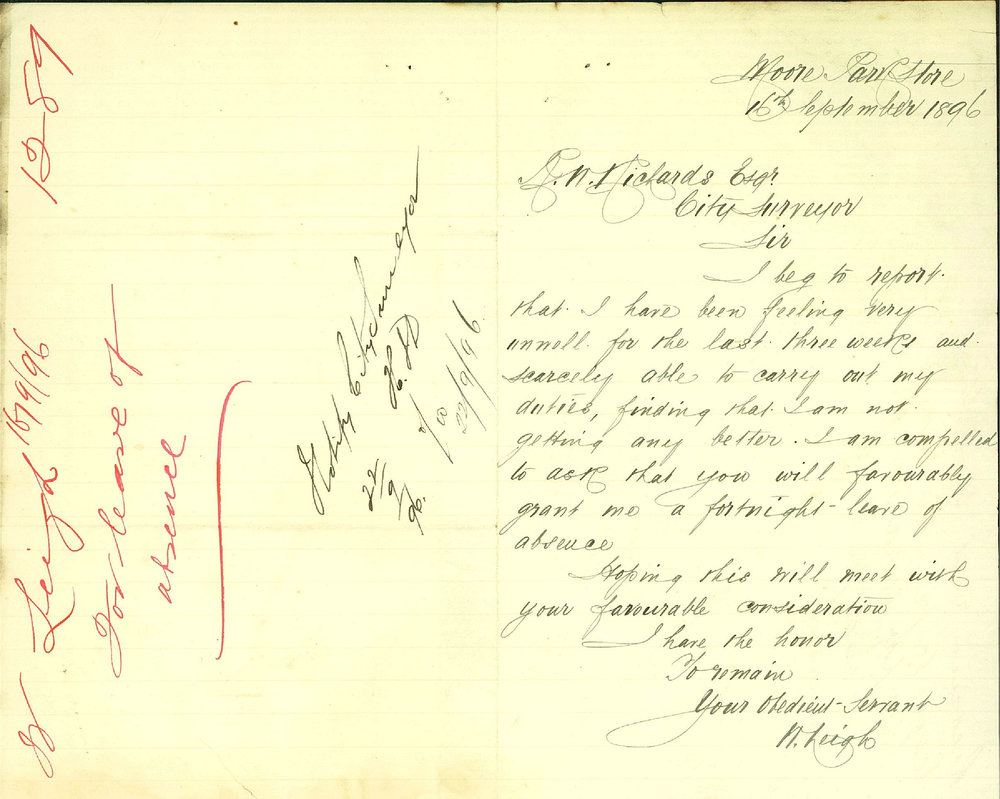 Moore Park Store
16th September 1896
R. W. Richards Esqr.
City Surveyor
Sir
I beg to report
that I have been feeling very
unwell for the last three weeks and
scarcely able to carry out my
duties, finding that I am not
getting any better. I am compelled
to ask that you will favourably
grant me a fortnight leave of
absence
Hoping this will meet with
your favourable consideration
I have the honor
To remain
Your Obedient Servant
W. Leigh
Notify City Surveyor
22/9/96.
22/9/96
W Leigh 16/9/96 1259
For leave of
absence